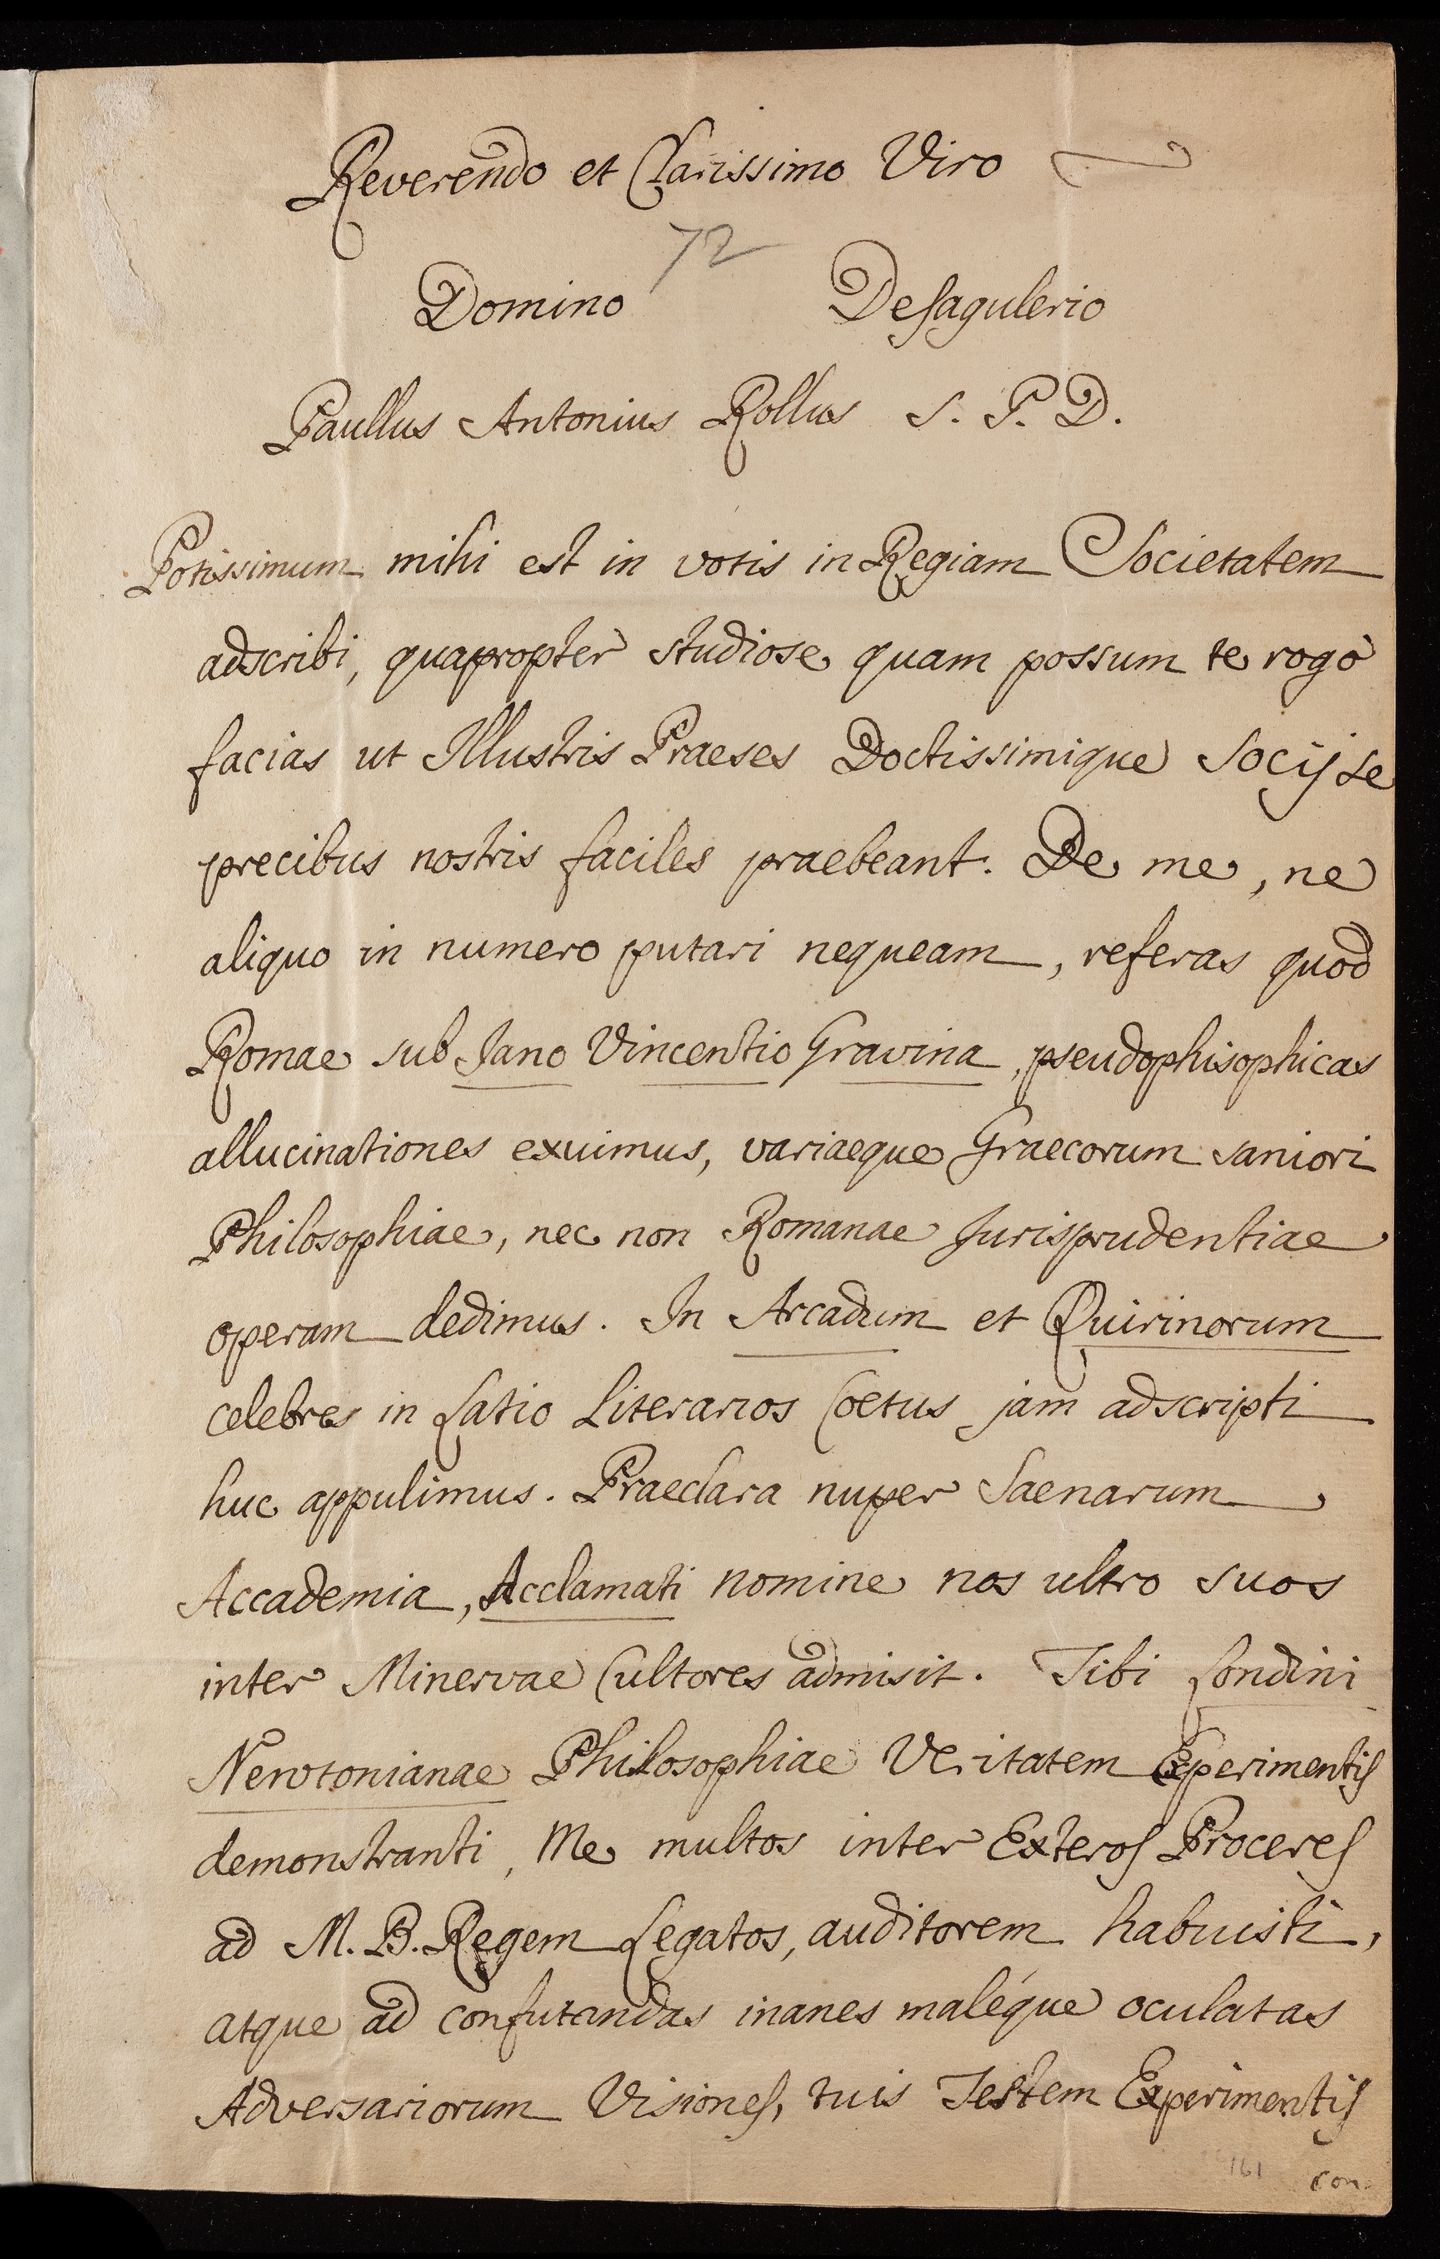 Reverendo et Clarissimo Viro
72
Domino Desagulerio
Paullus Antonius Rollus S. P. D.
Potissimum mihi est in votis in Regiam Societatem
adscribi, quapropter studiose quam possum te rogo
facias ut Illustris Praeses Doctissimique Socij se
precibus nostris faciles praebeant. De me, ne
aliquo in numero putari nequeam, referas quod
Romae sub Jano Vincentio Gravina, pseudophisophicas
allucinationes exuimus, variaeque Graecorum saniori
Philosophiae, nec non Romanae Jurisprudentiae
operam dedimus. In Arcadum et Quirinorum
celebres in Latio Literarios Coetus jam adscripti
huc appulimus. Praeclara nuper Saenarum
Accademia, Acclamati nomine nos ultro suos
inter Minervae Cultores admisit. Tibi Londini
Newtonianae Philosophiae Veritatem Experimentis
demonstranti, Me multos inter Exteros Proceres
ad M. B. Regem Legatos, auditorem habuisti,
atque ad confutandas inanes maléque oculatas
Adversariorum Visiones, tuis Testem Experimentis
161 con-